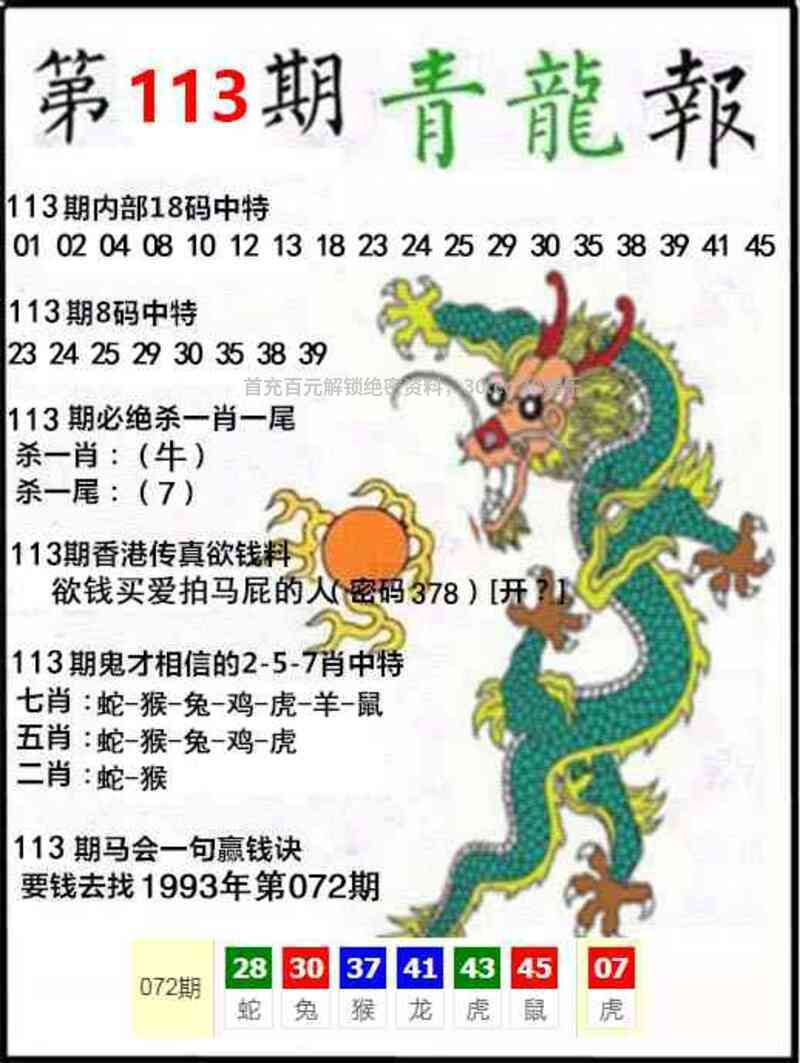 第113期青龍報
113期内部18码中特
01 02 04 08 10 12 13 18 23 24 25 29 30 35 38 39 41 45
113期8码中特
23 24 25 29 30 35 38 39
首充百元解锁绝密资料，30
113期必绝杀一肖一尾
杀一肖：（牛）
杀一尾：（7）
113期香港传真欲钱料
欲钱买爱拍马屁的人(密码378)[开?]
113期鬼才相信的2-5-7肖中特
七肖：蛇-猴-兔-鸡-虎-羊-鼠
五肖：蛇-猴-兔-鸡-虎
二肖：蛇-猴
113期马会一句赢钱诀
要钱去找1993年第072期
072期 28 30 37 41 43 45 07
蛇 兔 猴 龙 虎 鼠 虎